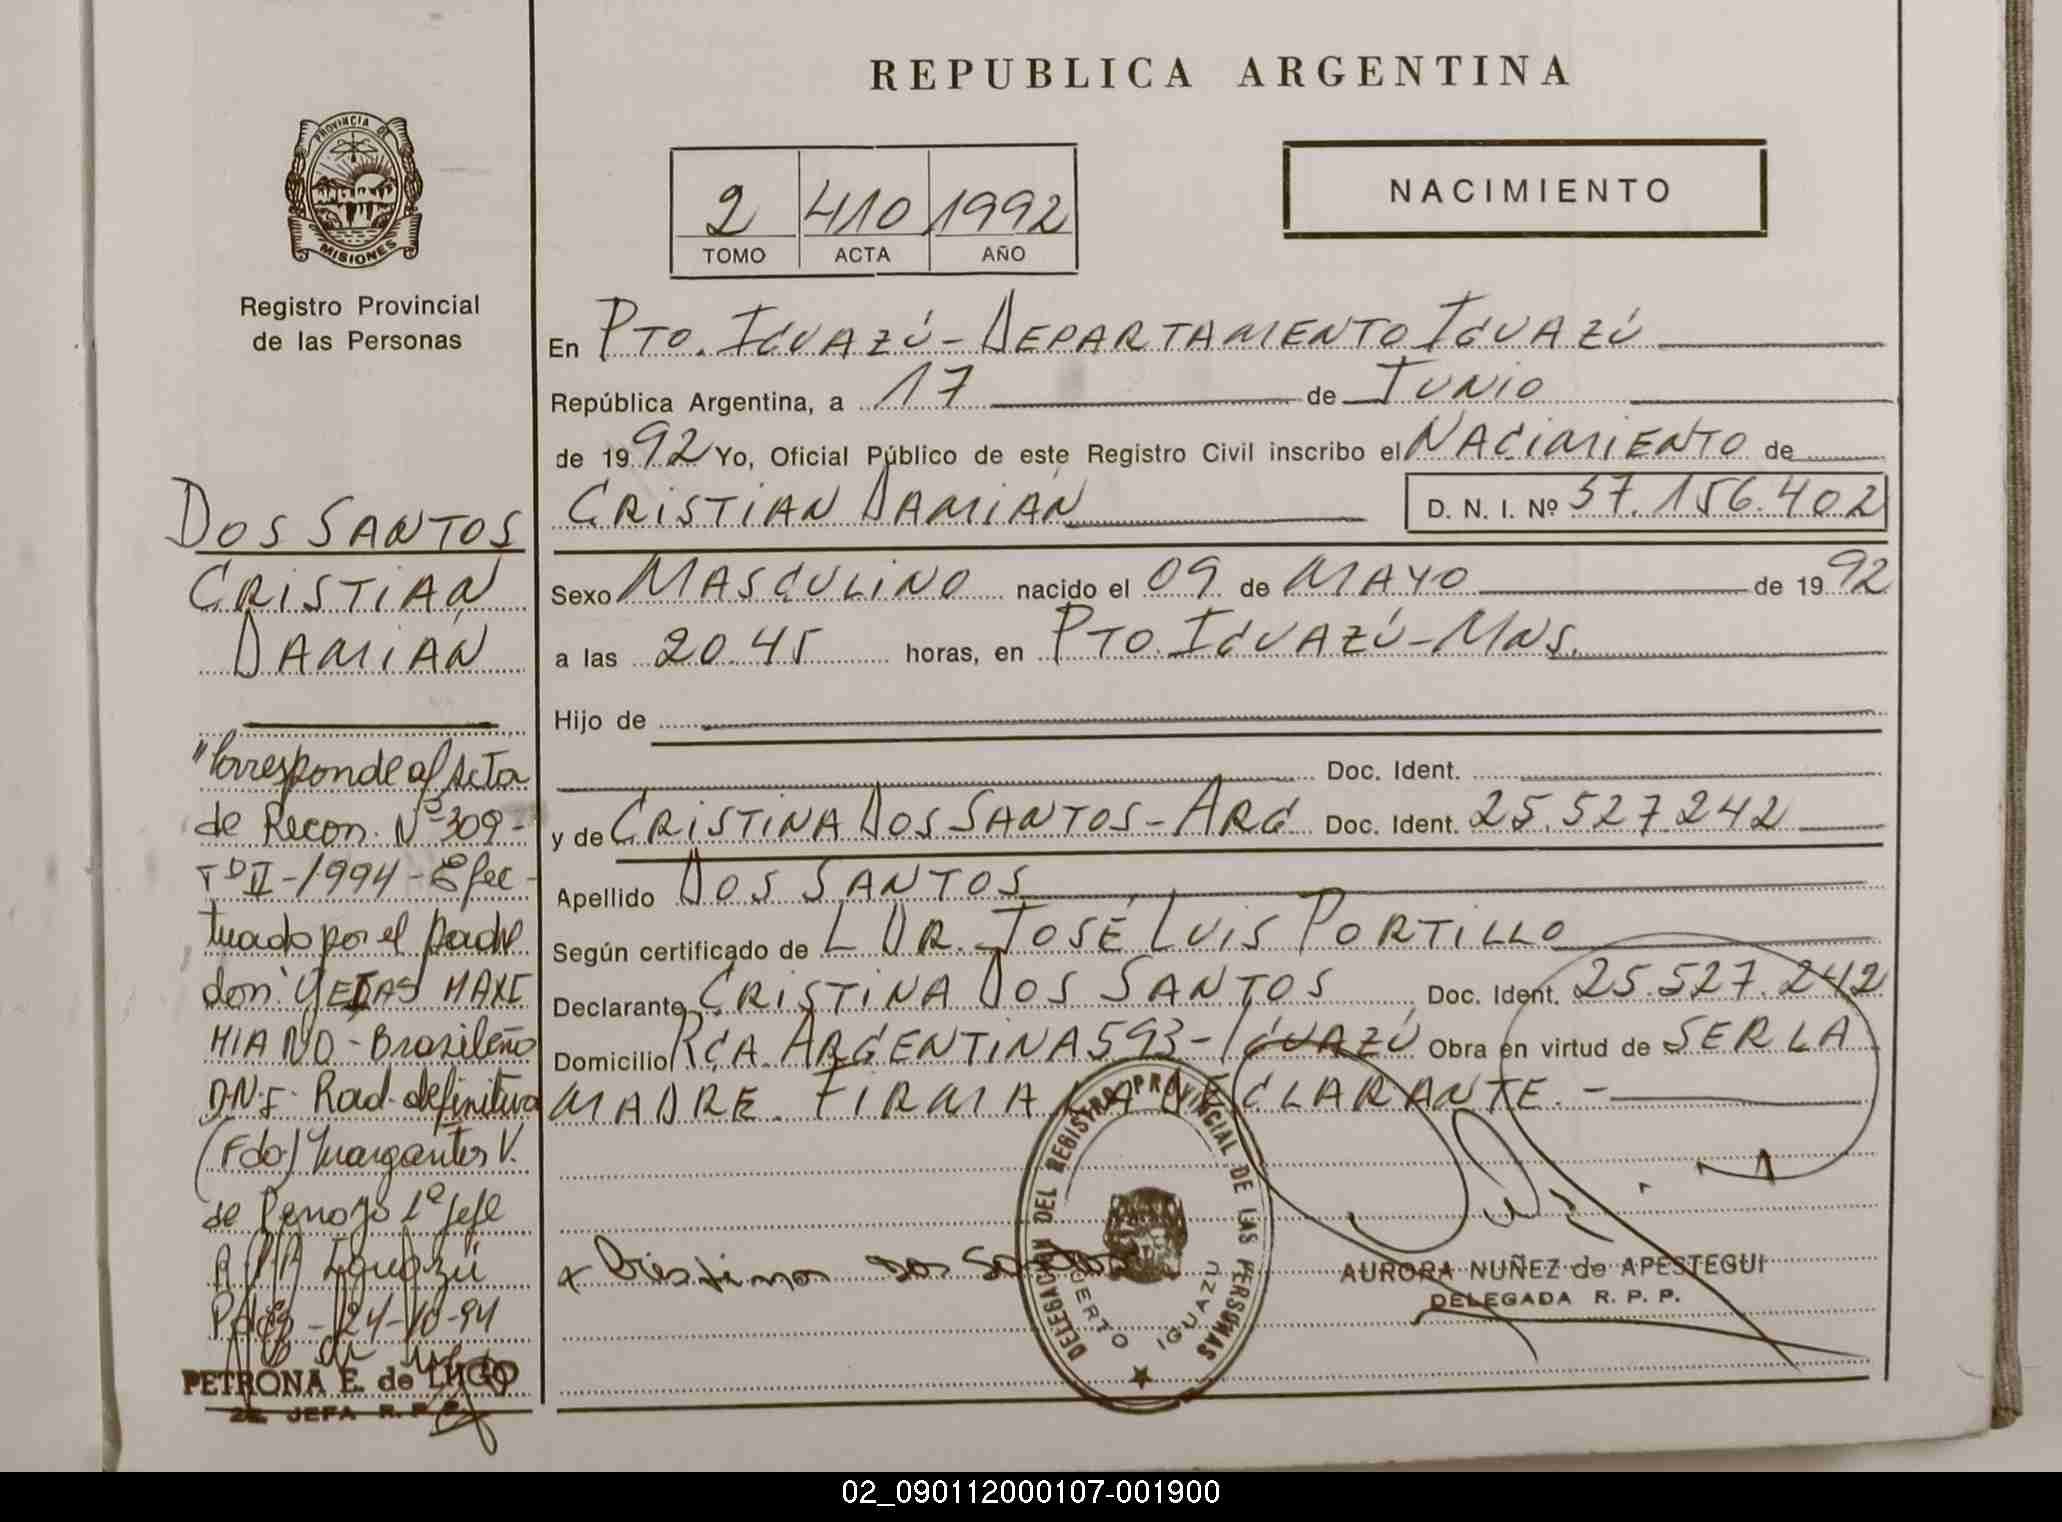 REPUBLICA ARGENTINA
PROVINCIA DE
MISIONES
Registro Provincial
de las Personas
2 410 1992
TOMO ACTA AÑO
NACIMIENTO
En PTO. IGUAZÚ - DEPARTAMENTO IGUAZÚ
República Argentina, a 17 de JUNIO
de 1992 Yo, Oficial Público de este Registro Civil inscribo el NACIMIENTO de
CRISTIAN DAMIÁN D. N. I. Nº 37.156.402
Sexo MASCULINO nacido el 09 de MAYO de 1992
a las 20.45 horas, en PTO. IGUAZÚ - MNS.
Hijo de
Doc. Ident.
y de CRISTINA DOS SANTOS - ARG Doc. Ident. 25.527.242
Apellido DOS SANTOS
Según certificado de L DR. JOSÉ LUIS PORTILLO
Declarante CRISTINA DOS SANTOS Doc. Ident. 25.527.242
Domicilio RCA. ARGENTINA 593 - IGUAZÚ Obra en virtud de SER LA
MADRE. FIRMA LA DECLARANTE. -
DOS SANTOS
CRISTIAN
DAMIÁN
"Corresponde al Acta
de Recon. Nº 309 -
Tº II - 1994 - Efec -
tuado por el padre
don MAXI
MIANO - Brasileño
D.N.I. Rad. definitiva
(Fdo) V.
de 1ª Jefe
Iguazú
24-10-94
PETRONA E. de LUGO
2ª JEFA R. P. P.
x Cristina Dos Santos
DELEGACION DEL REGISTRO PROVINCIAL DE LAS PERSONAS
PUERTO IGUAZU
AURORA NUÑEZ de APESTEGUI
DELEGADA R. P. P.
02_090112000107-001900